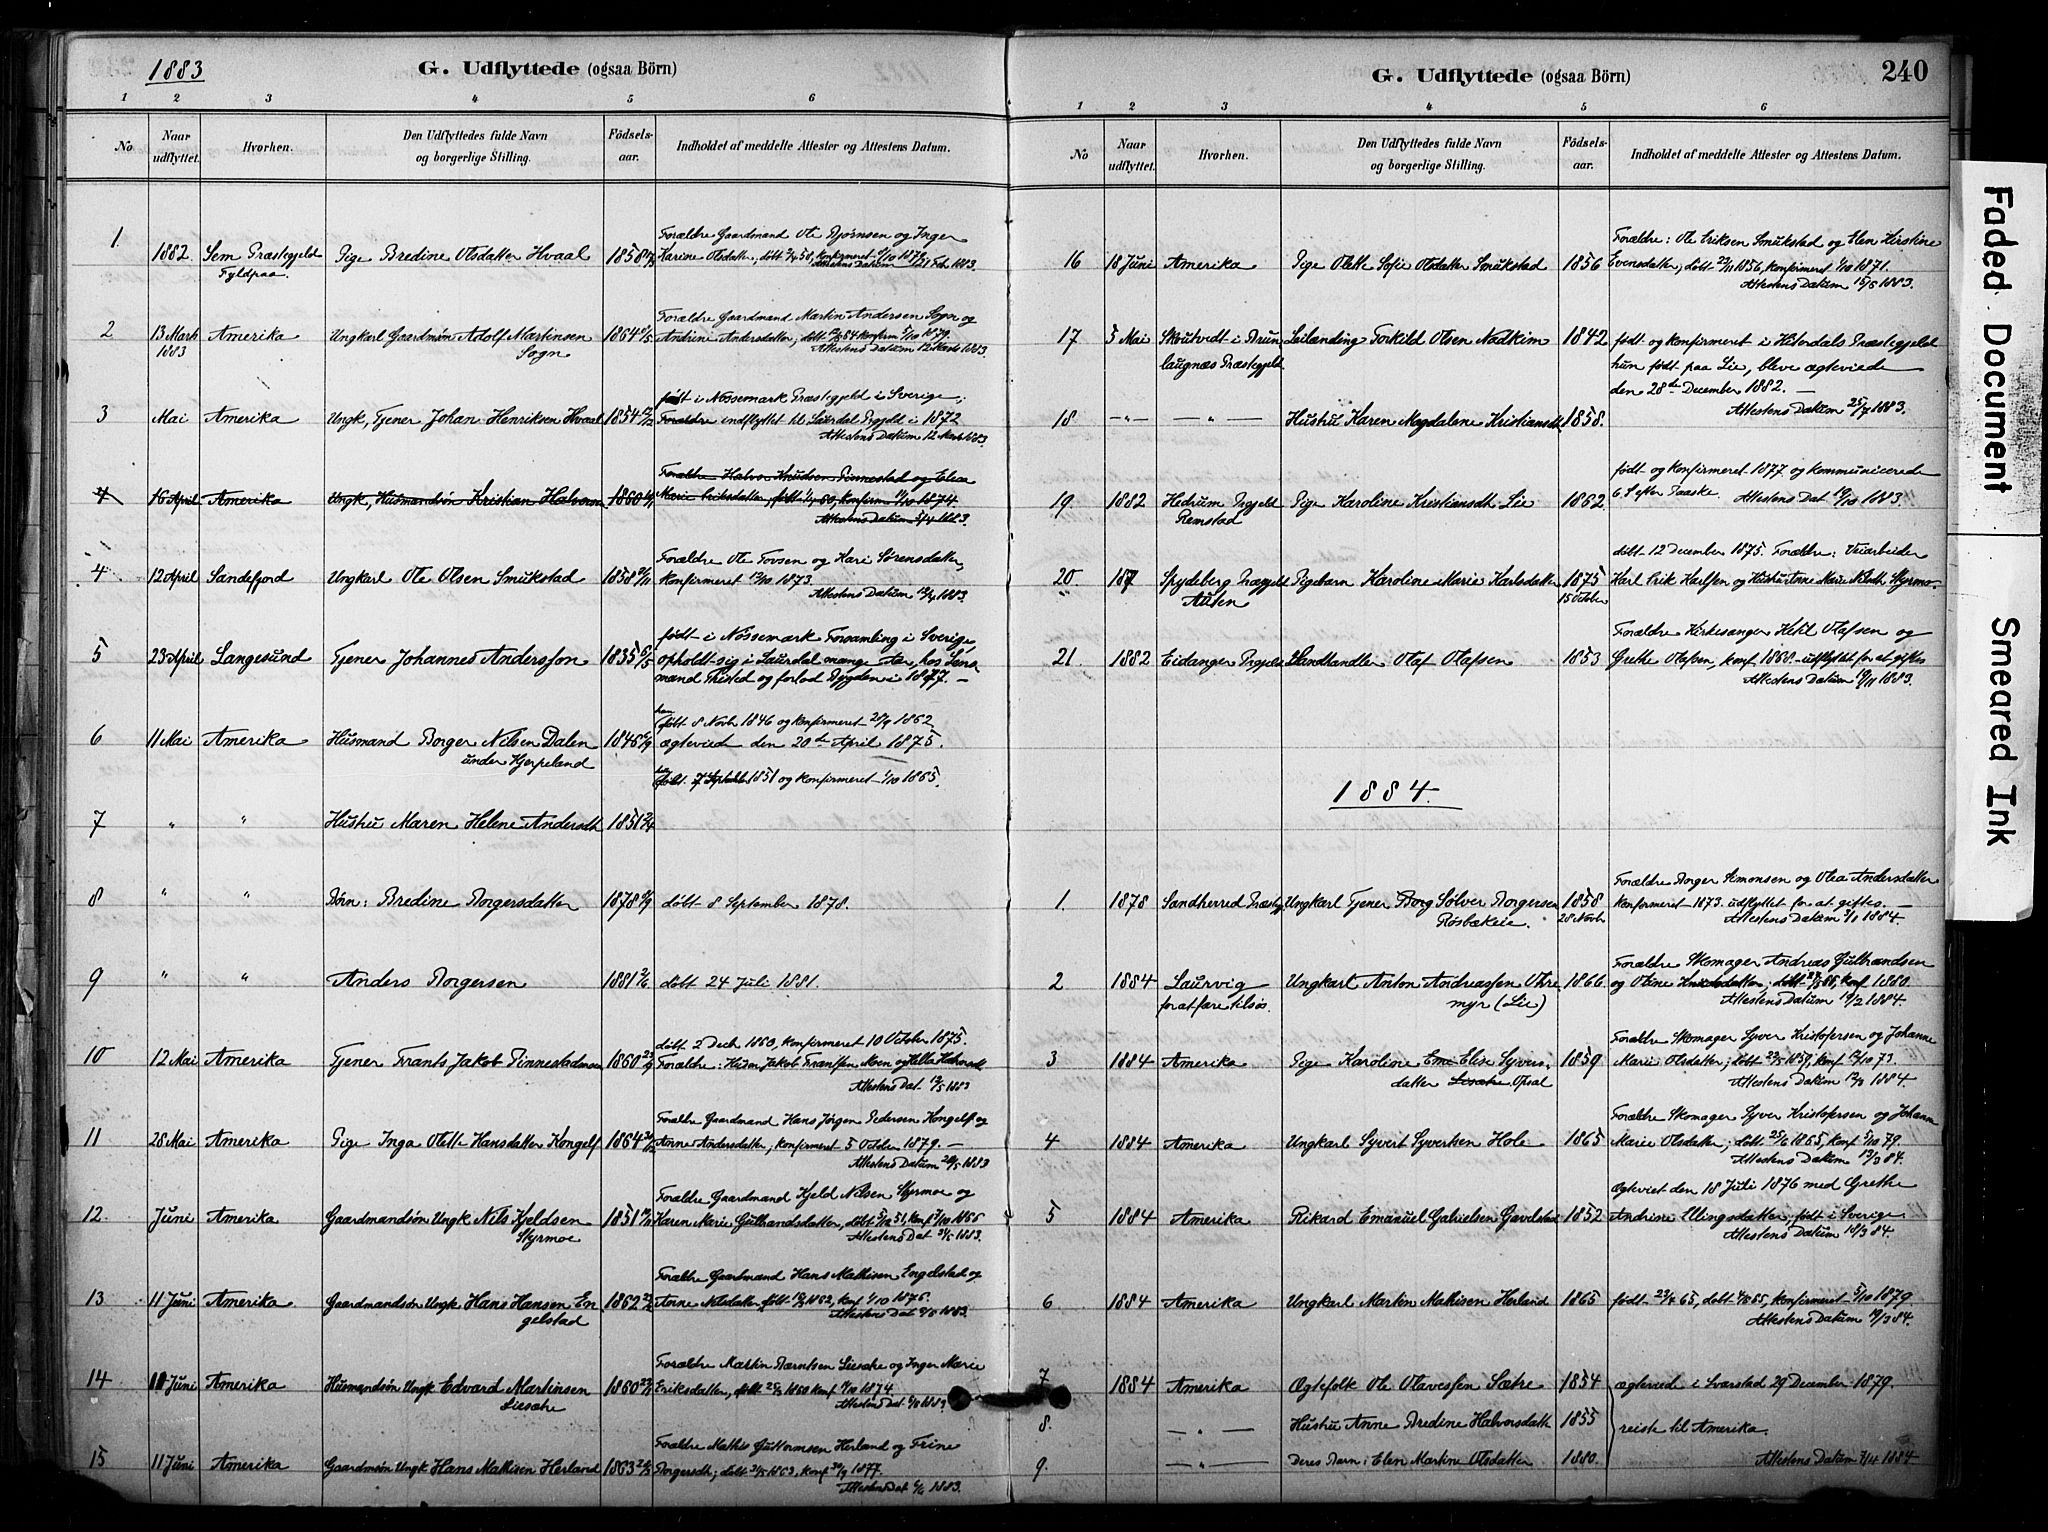 1883
G. Udflyttede (ogsaa Börn)
1 2 3 4 5 6
No
Naar udflyttet.
Hvorhen.
Den Udflyttedes fulde Navn
og borgerlige Stilling.
Födsels-
aar.
Indholdet af meddelte Attester og Attestens Datum.
1.
1882. Sem Præstegjeld Pige Bredine Olsdatter Hvaal 1858
Forældre Gaardmand Ole Bjørnsen og Inger
Karine Olsdatter, døbt
Attestens Datum Feb. 1883.
2 13 Marts Amerika Ungkarl Gaardmsøn Adolf Martinsen 1864
1883 Sogn
Forældre Gaardmand Martin Andersen Sogn og
Andrine Andersdatter, døbt konfirm 5/10 1879.
Attestens Datum 12 Marts 1883.
3 Mai Amerika Ungk, Tjener Johan Henriksen Hvaal 1854
født i Nössemark Præstegjeld i Sverige,
Forældre indflyttet til Laurdal Prgjeld i 1872
Attestens Datum 12 Marts 1883
4 16 April Amerika Ungk, Husmandsøn Kristian Halvorsen 1860
Forældre Halvor Knudsen Pinnestad og Elea
Marie Eriksdatter, født konfirm 1874.
Attestens Datum 5/4 1883.
4 12 April Sandefjord Ungkarl Ole Olsen Smukstad 1858
Forældre Ole Tovsen og Kari Sørensdatter,
konfirmeret 12/10 1873.
Attestens Datum 12/4 1883.
5 23 April Langesund Tjener Johannes Andersson 1835
født i Nössemark Forsamling i Sverige,
opholdt sig i Laurdal mange Aar, hos Lens
mand Thisted og forlod Bygden i 1877. —
6 11 Mai Amerika Husmand Borger Nilsen Dalen 1846
under Kjerpeland
han født 8 Novb 1846 og konfirmeret 28/9 1862
ægteviede den 20de April 1875.
døbt 7 Septembr 1851 og konfirmeret 1/10 1865.
7 " " Hustru Maren Helene Andersdt 1851
8 " " Börn: Bredine Borgersdatter 1878 døbt 8 September 1878.
9 " " Anders Borgersen 1881 døbt 24 Juli 1881.
10 12 Mai Amerika Tjener Frants Jakob Pinnestadmoen 1860
døbt 2 Decb 1860, konfirmeret 10 October 1875.
Forældre: Husm Jakob Franssen Moen og Helle Halvorsdt
Attestens Dat 12/5 1883
11 28 Mai Amerika Pige Inga Olette Hansdatter Kongelf 1864
Forældre Gaardmand Hans Jørgen Pedersen Kongelf og
Anne Andersdatter, konfirmeret 5 October 1879. —
Attestens Datum 28/5 1883
12. Juni Amerika Gaardmandsøn Ungk Nils Kjeldsen 1851
Styrmoe
Forældre Gaardmand Kjeld Nilsen Styrmoe og
Karen Marie Gulbrandsdatter, døbt 5/10 51, konf 7/10 1866
Attestens Dat 1883.
13. 11 Juni Amerika Gaardmandsøn Ungk Hans Hansen En 1862
gelstad
Forældre Gaardmand Hans Mathisen Engelstad og
Anne Nilsdatter, født 1862, konf 1/10 1876.
Attestens Dat 1883.
14 11 Juni Amerika Husmandsøn Ungk Edvard Martinsen 1860
Liesætre
Forældre Martin Berntsen Liesætre og Inger Marie
Eriksdatter, 1860 konf 1874.
Attestens Dat. 1883.
15 11 Juni Amerika Gaardmsøn Ungk Hans Mathisen Herland 1863
Forældre Mathis Guttormsen Herland og Trine
Borgersdt; døbt 1863, konf 30/9 1877.
Attestens Dat 1883.
G. Udflyttede (ogsaa Börn)
240
1 2 3 4 5 6
No
Naar udflyttet.
Hvorhen.
Den Udflyttedes fulde Navn
og borgerlige Stilling.
Födsels-
aar.
Indholdet af meddelte Attester og Attestens Datum.
16 18 Juni Amerika Pige Olette Sofie Olsdatter Smukstad 1856
Forældre: Ole Eriksen Smukstad og Elen Kirstine
Evensdatter, døbt 1856, konfirmeret 1/10 1871.
Attestens Datum 15/6 1883.
17 3 Mai Skoutvedt i Brun Leilænding Torkild Olsen Nadkim 1842
laugnæs Præstegjeld
født og konfirmeret i Hitterdals Præstegjeld
hun født paa Lie, bleve ægteviede
den 28de December 1882. —
Attestens Datum 1883.
18 —"— —"— Hustru Karen Magdalene Kristiansdt 1858.
19 1882 Hedrum Prgjeld Pige Karoline Kristiansdt Lie 1862.
Remstad
født og konfirmeret 1877 og kommunicerede
6 S efter Paaske. Attestens Dat 19/10 1883.
20 187 Spydeberg Præstgjeld Pigebarn Karoline Marie Karlsdatter 1875
Auten 15 October
døbt 12 December 1875. Forældre: Veiarbeider
Karl Erik Karlsen og Hustru Anne Marie Nilsdt Styrmo.
21. 1882 Eidanger Prgjeld Landhandler Olaf Olafsen 1853
Forældre Kirkesanger Ketil Olafsen og
Grethe Olafsen, konf 1868 udflyttet for at giftes
Attestens Datum 19/11 1883.
1884.
1. 1878 Sandherred Præstgj Ungkarl Tjener Borg Sølver Borgersen 1858
Røsbækeie. 28 Novb
Forældre Borger Simonsen og Olea Andersdatter
konfirmeret 1873. udflyttet for at giftes. —
Attestens Datum 1884.
2 1884 Laurvig Ungkarl Anton Andreassen Øvre 1866.
for at fare tilsøs. myr (Lie)
Forældre Skomager Andreas Gulbrandsen
og Oline Knudsdatter; døbt 66, konf 1880.
Attestens Datum 19/2 1884.
3 1884 Amerika Pige Karoline Emi Elise Syvers 1859
datter Liesætre Opsal
Forældre Skomager Syver Kristofersen og Johanne
Marie Olsdatter; døbt 1859, konf 12/10 73.
Attestens Datum 12/3 1884
4 1884 Amerika Ungkarl Syvert Syvertsen Hole 1865
Forældre Skomager Syver Kristofersen og Johann
Marie Olsdatter; døbt 25/6 1865, konf 5/10 79.
Attestens Datum 13/3 84.
5 1884 Amerika Rikard Emanuel Gabrielsen Gavelstad 1852
Ægteviet den 18 Juli 1876 med Grethe
Andrine Ellingsdatter, født i Sverige
Attestens Datum 18/3 84.
6 1884 Amerika Ungkarl Martin Mathisen Herland 1865
født 65, døbt 65, konfirmeret 5/10 1879
Attestens Datum 19/3 84.
7 1884 Amerika Ægtefolk Ole Olavessen Sætre 1854 ægteviet i Svarstad 29 December 1879.
8. —"— Hustru Anne Bredine Halvorsdatter 1855 reiste til Amerika.
9. —"— Deres Barn: Elen Martine Olsdatter 1880. Attestens Datum 7/4 1884
Faded Document
Smeared Ink